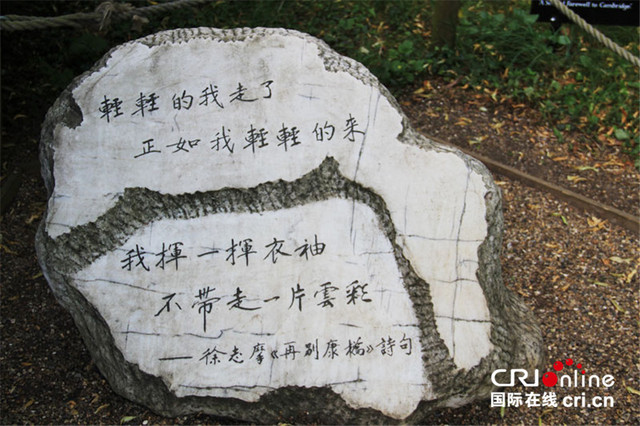 A second farewell to Cambridge'
輕輕的我走了
正如我輕輕的來
我揮一揮衣袖
不帶走一片雲彩
——徐志摩《再别康橋》詩句
CRI online
国际在线 cri.cn